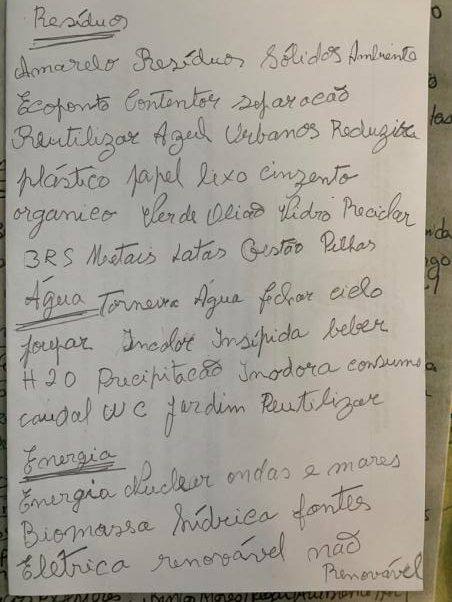 Resíduos
Amarelo Resíduos Sólidos Ambiente
Ecoponto Contentor separacão
Reutilizar Azul Urbanos Reduzir
plástico papel lixo cinzento
organico Verde Olião Vidro Reciclar
3RS Metais Latas Gestão Pilhas
Água Torneira Água fechar ciclo
poupar Incolor Insípida beber
H20 Precipitacão Inodora consumo
caudal WC Jardim Reutilizar
Energia
Energia Nuclear ondas e mares
Biomassa hídrica fontes
Eletrica renovável não
Renovável